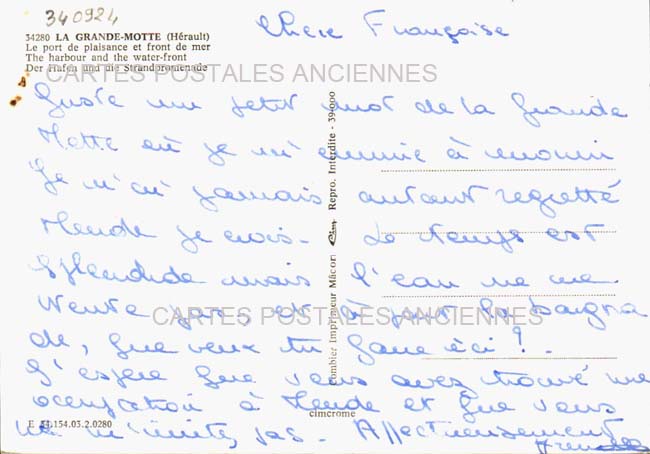 340924
Chère Françoise
34280 LA GRANDE-MOTTE (Hérault)
Le port de plaisance et front de mer
The harbour and the water-front
Der Hafen und die Strandpromenade
CARTES POSTALES ANCIENNES
Juste un petit mot de la Grande
Motte où je m'ennuie à mourir
Je n'ai jamais autant regretté
Mende je crois. Le temps est
splendide mais l'eau ne me
tente pas, et à part la baigna
de, que veux tu faire ici !
CARTES POSTALES ANCIENNES
J'espère que vous avez trouvé une
occupation à Mende et que vous
ne m'imitez pas. Affectueusement
Combier Imprimeur Mâcon
Cim
Repro. Interdite - 39-000
E 34.154.03.2.0280
cimcrome